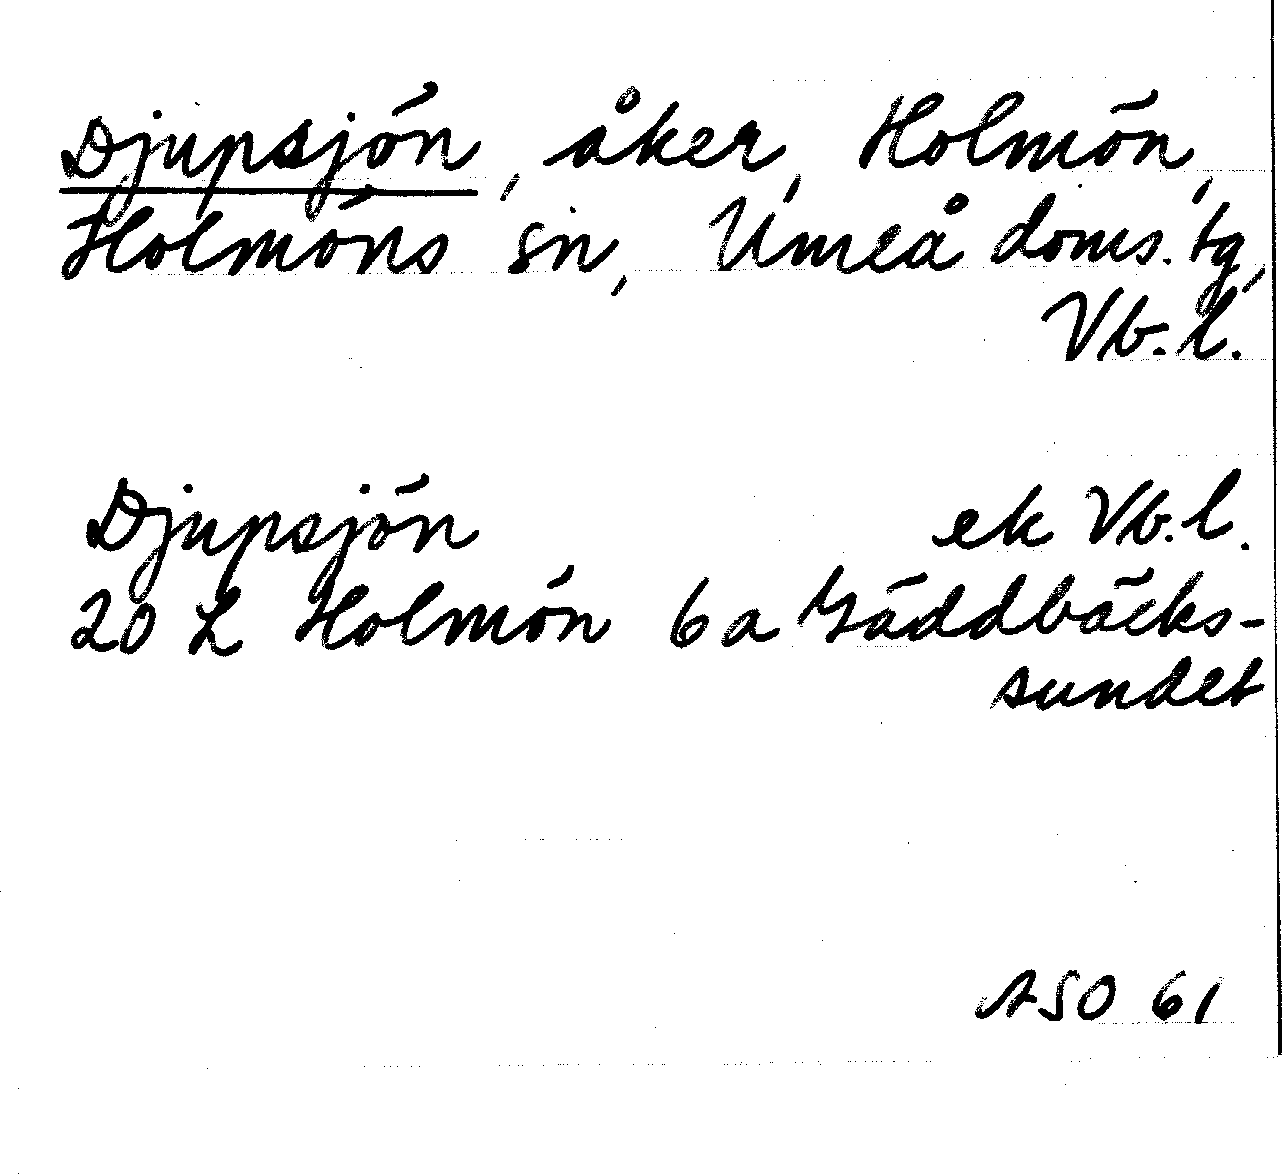 Djupsjön, åker, Holmön,
Holmöns sn, Umeå doms. tg,
Vb. l.
Djupsjön ek Vb. l.
20 L Holmön 6 a Gäddbäcks-
sundet
ASO 61